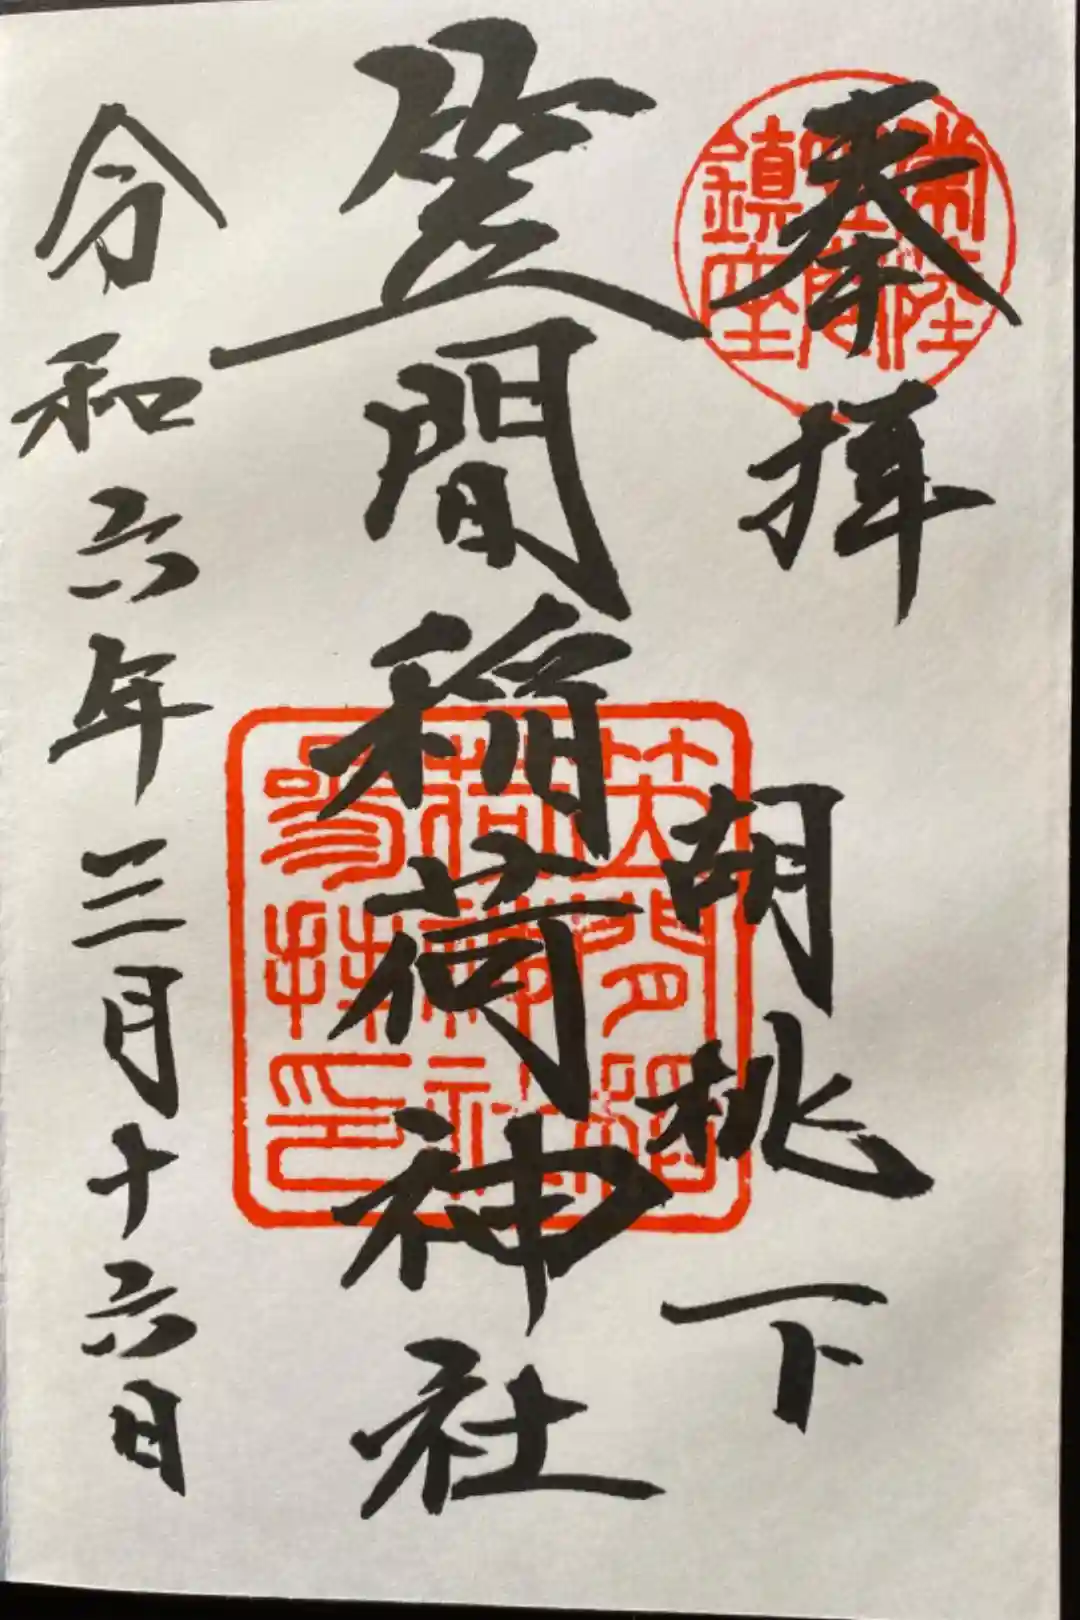 奉拝
胡桃下
笠間稲荷神社
令和六年三月十六日
常陸
笠間
鎮座
笠間稲
荷神社